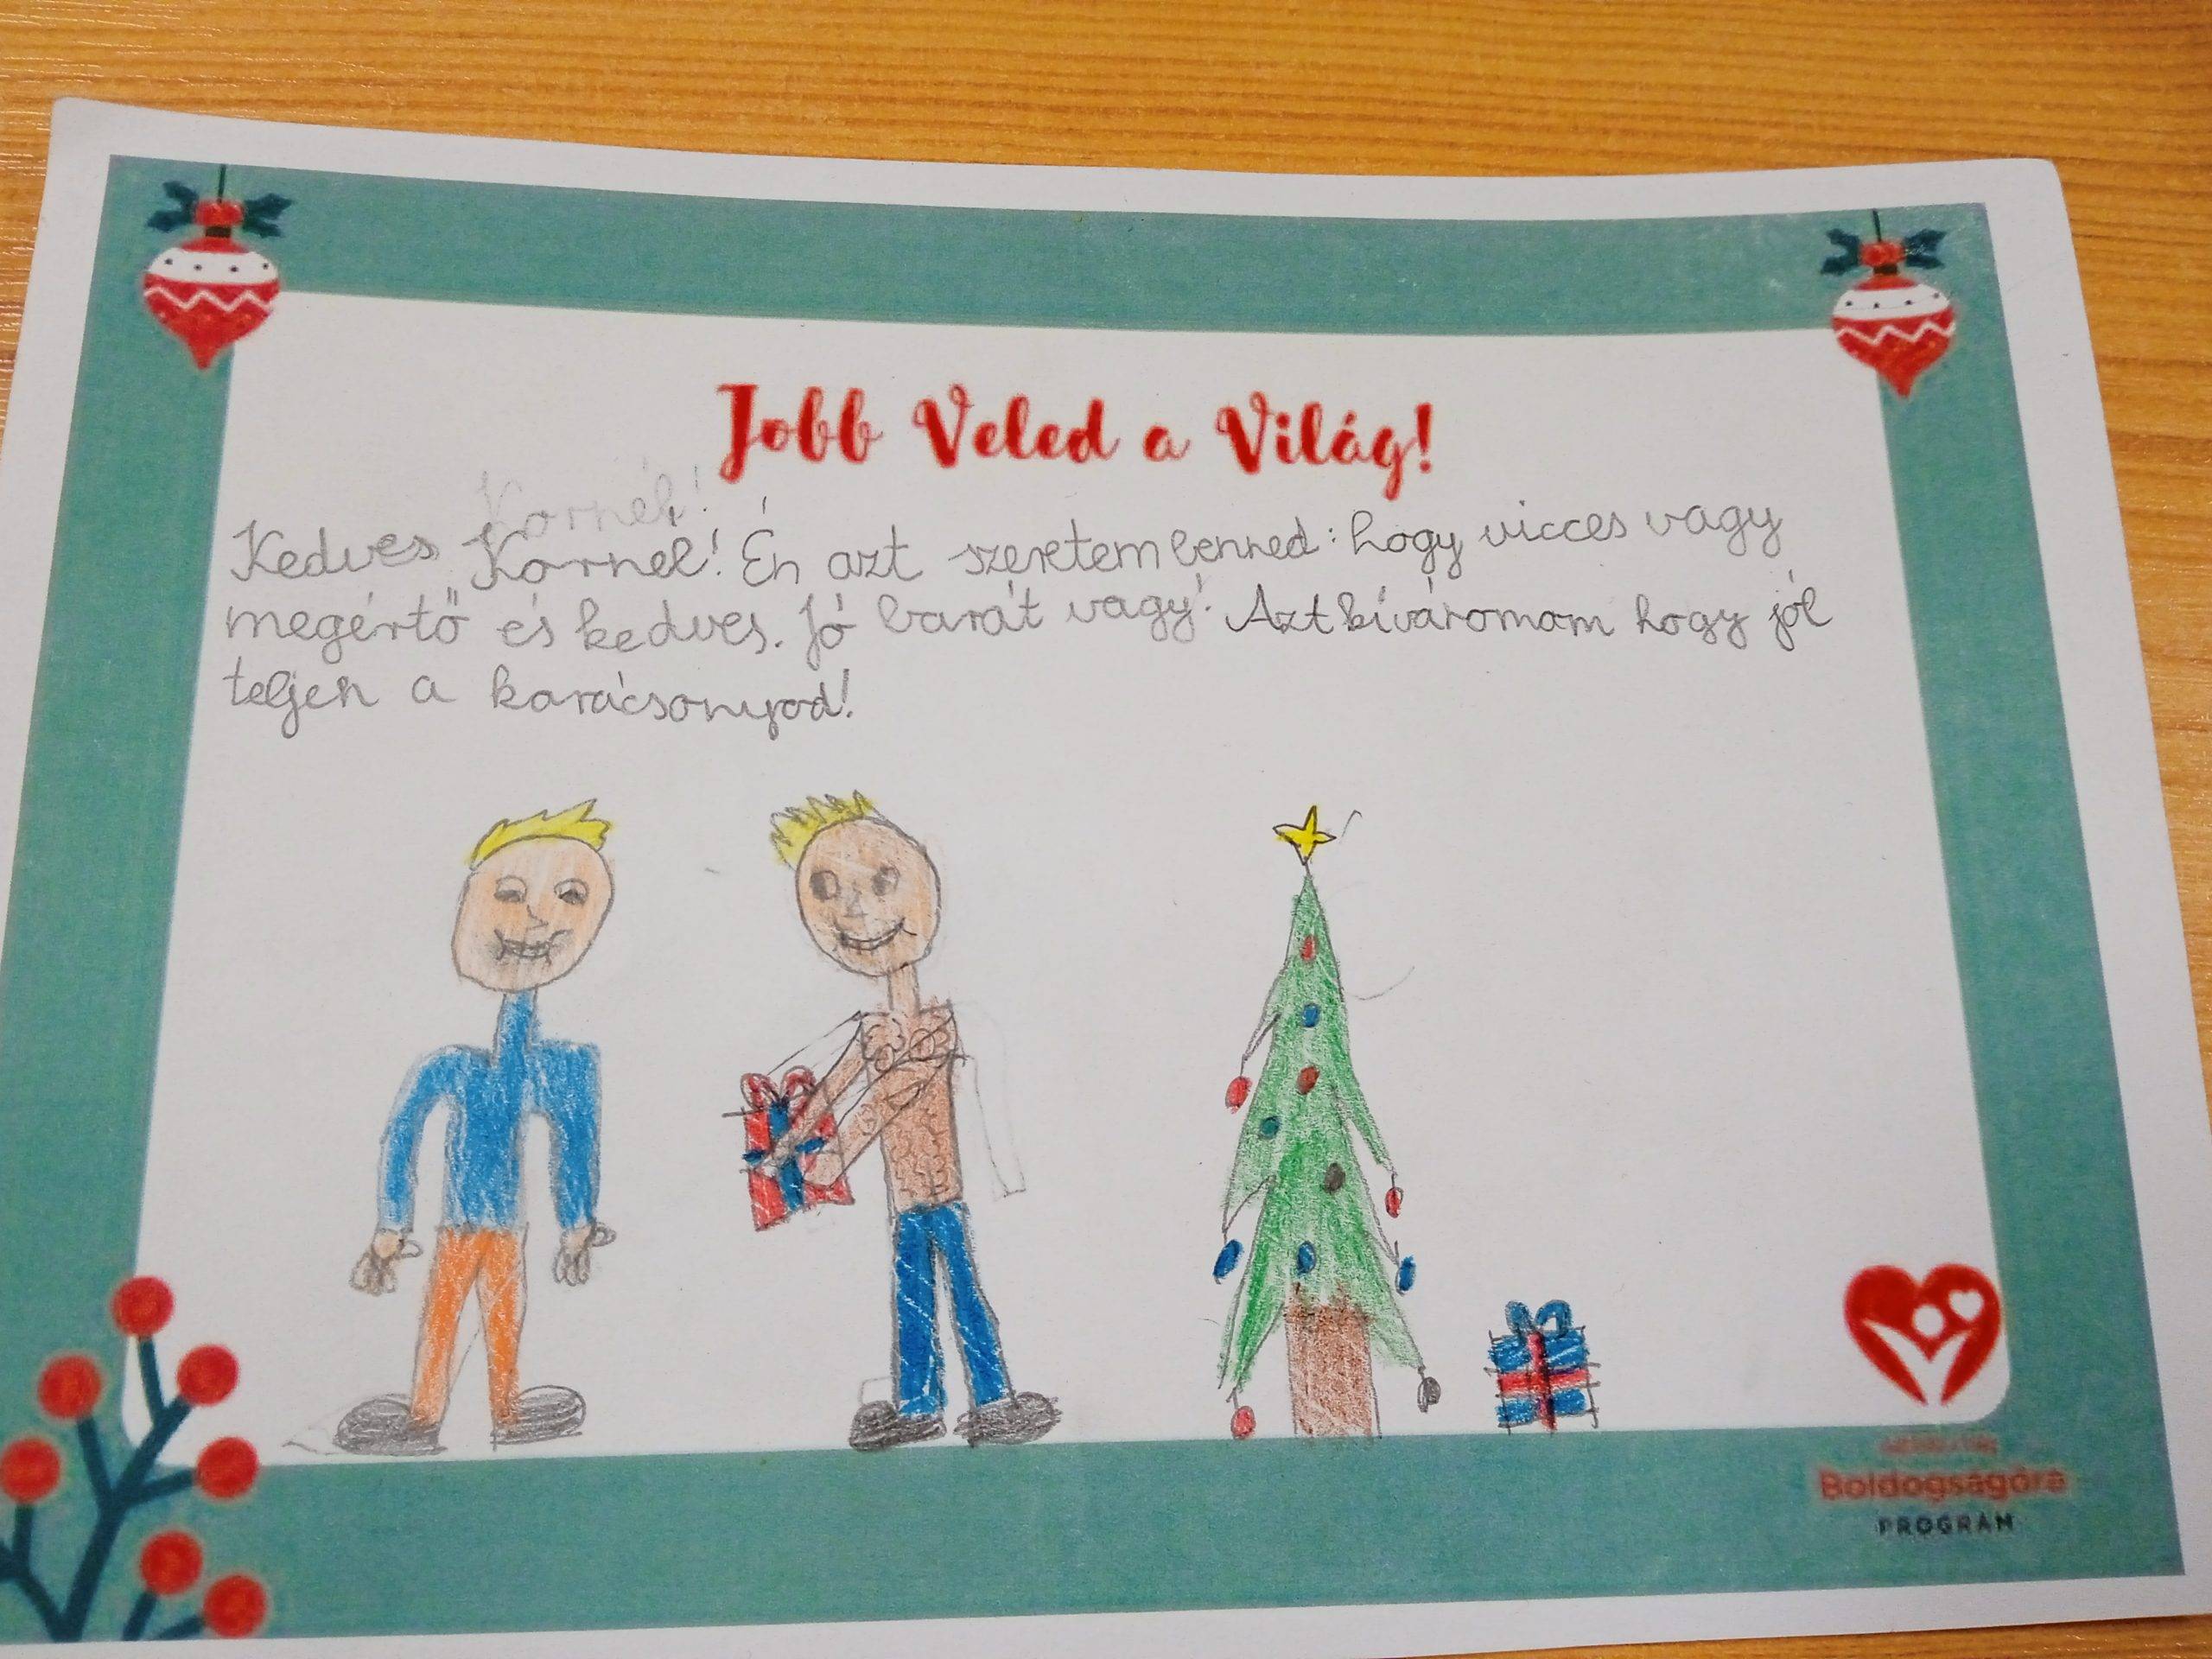 Jobb Veled a Világ!
Kornél!
Kedves Kornél! Én azt szeretem benned: hogy vicces vagy
megértő és kedves. Jó barát vagy! Azt kíváromom hogy jól
teljen a karácsonyod!
Boldogságóra
PROGRAM